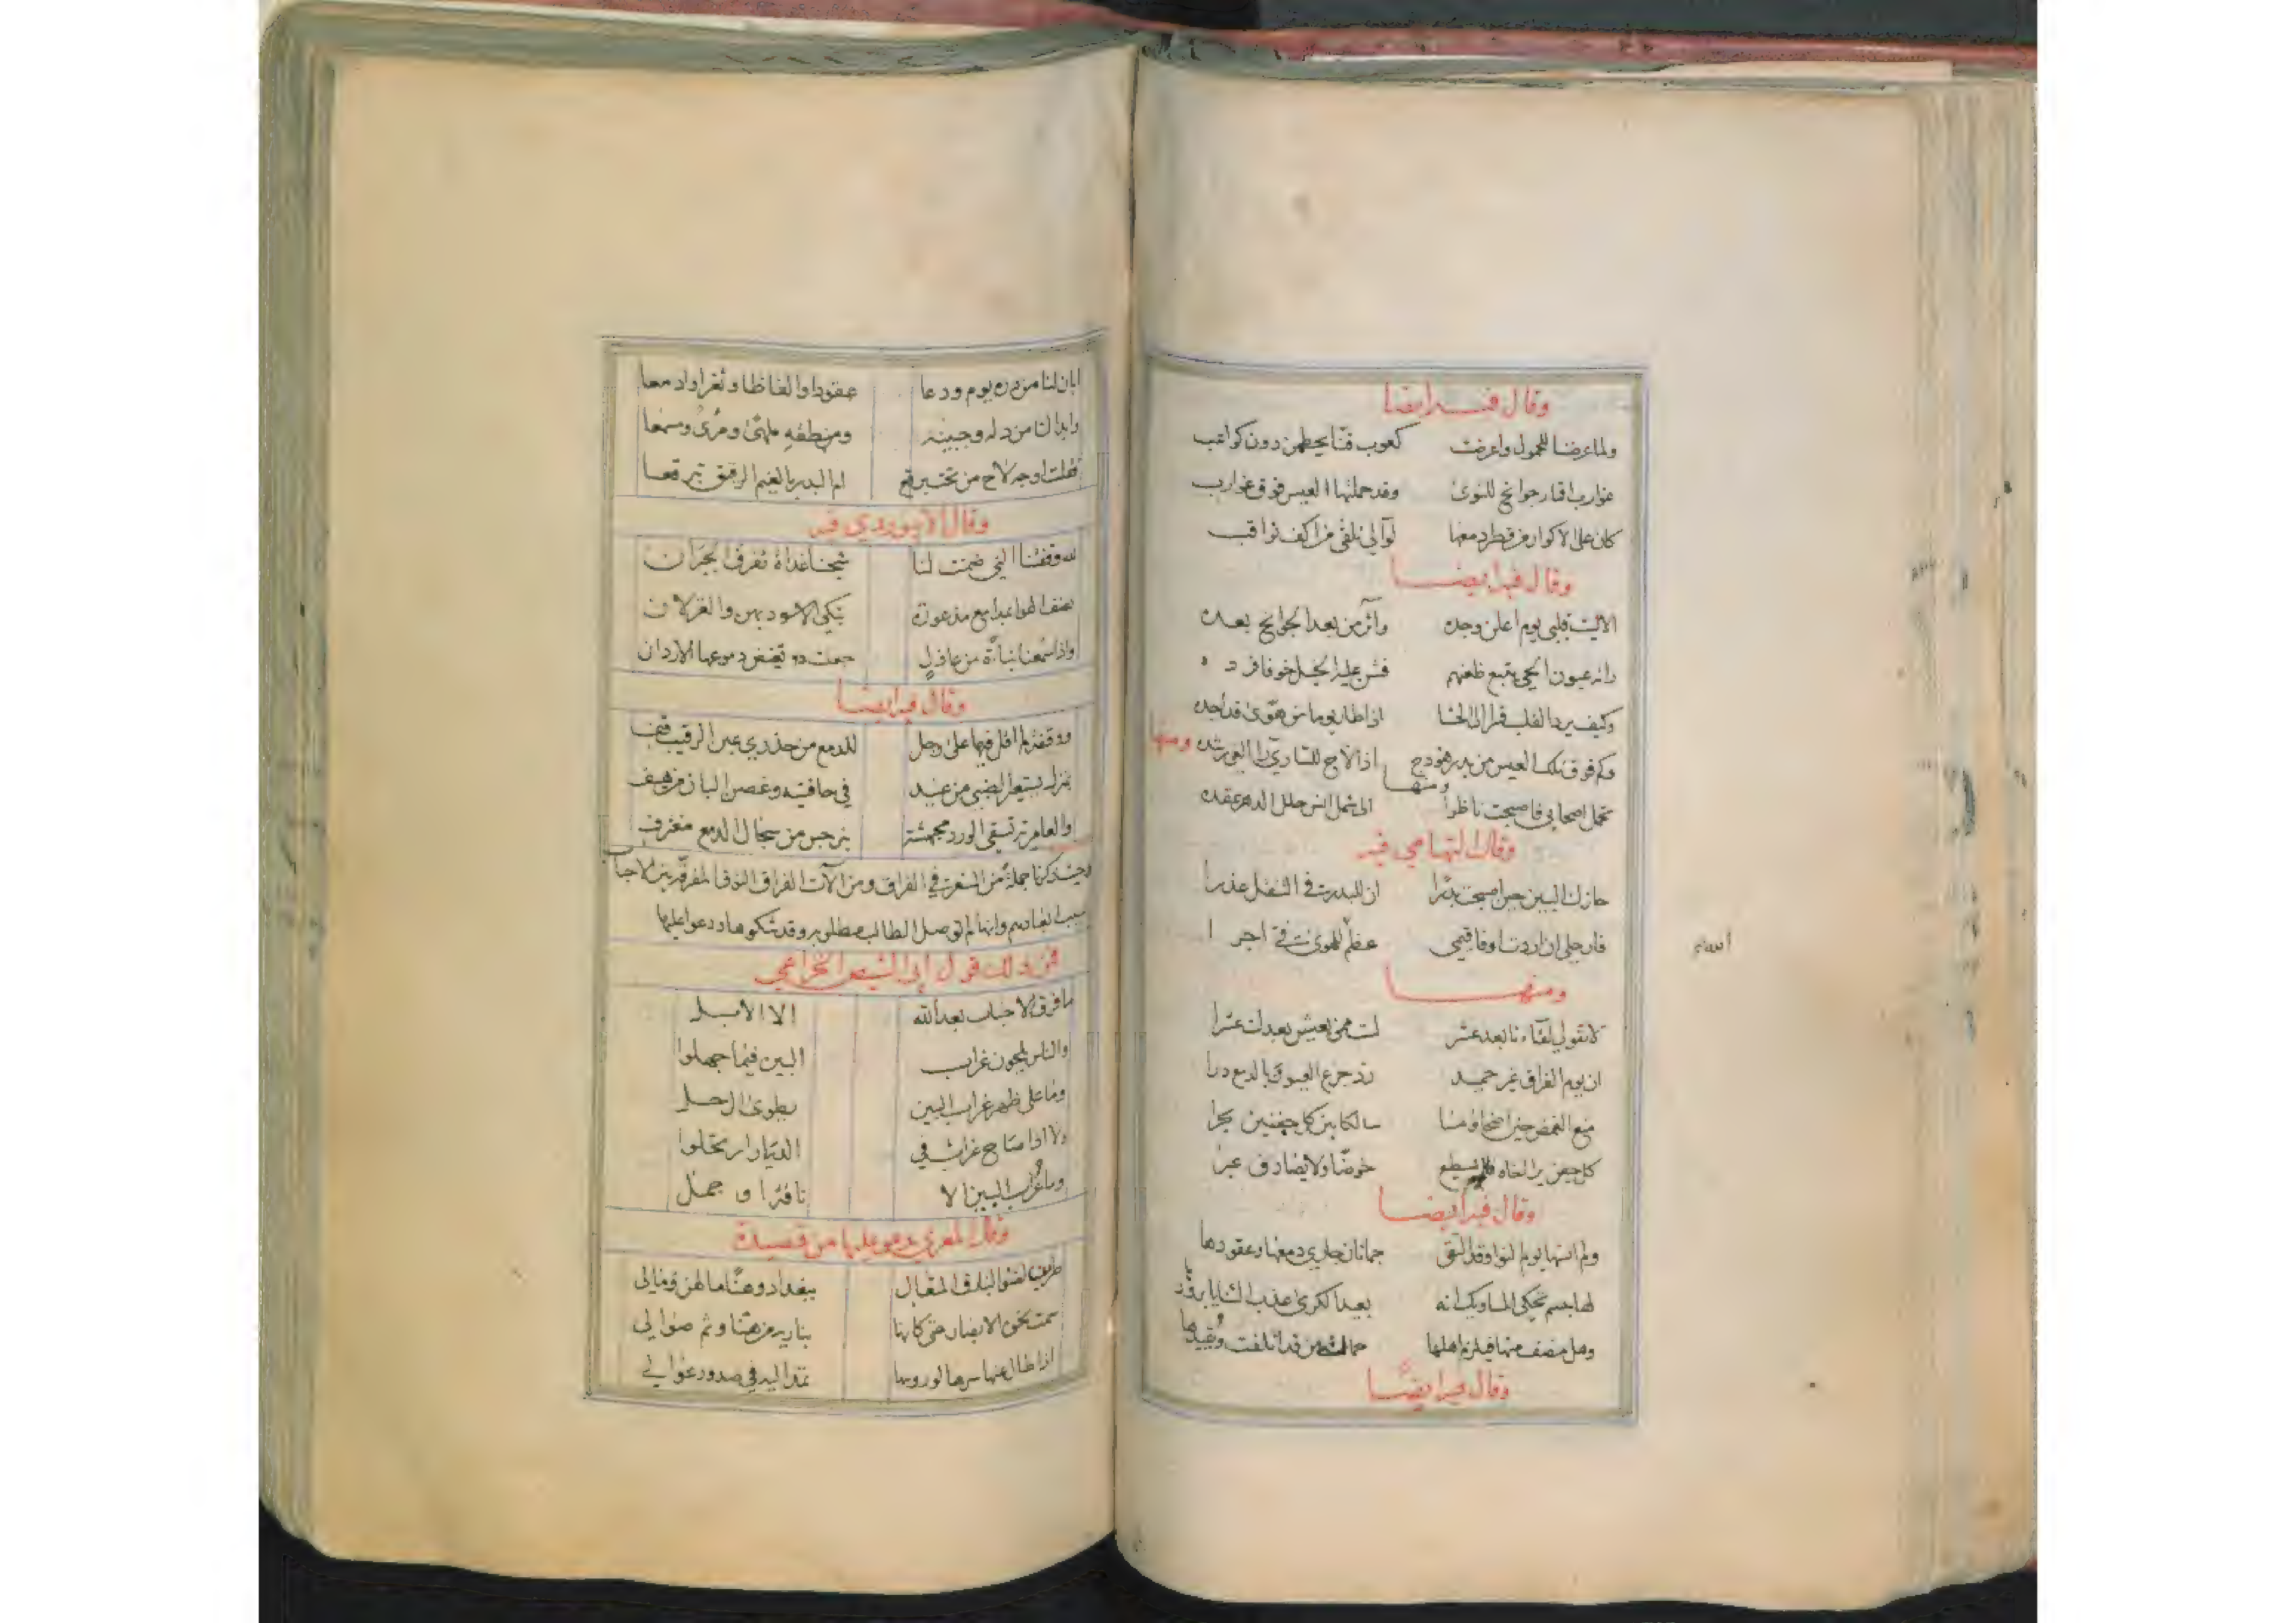 وقال فيه ايضا
ولما عرضنا للحمول واعرضت كعوب قنا يحطمن دون كواعب
غوارب اقمار جوانح للنوى وقد حملتها العيس فوق غوارب
كان على الاكوار من قطر دمعها لوالي تلقى من اكف ثواقب
وقال فيه ايضا
الا ليت قلبي يوم اعلن وجده وآثر من بعد الجوانح بعده
عيون الحي يتبع ظعنهم فشن عليه الخيل خوفا فرد
وكيف يرد القلب قسرا الى الحشا اذا طار يوما من هوى قد اجده
ومنها
وكم فوق تلك العيس من بدر هودج اذا لاح للساري الغوي رشده
ومنها
تحمل اصحابي فاصبحت ناظرا الى شمل انس حلل الدهر عقده
وقال التهامي فيه
حازك البين حين اصبحت بدرا ان للبدر في التنقل عذرا
فارحلي ان اردت او فاقيمي عظم الله للهوى في اجرا
ومنها
لا تقولي لقاءنا بعد عشر لست ممن يعيش بعدك عشرا
ان يوم الفراق غير حميد رد جزع العيون بالدمع درا
منع الغمض حين اضحى ومنا سالكا بين كل جفنين بحرا
كل جفن يرا اخاه فلم يسطع خوضا ولا يصادف عبرا
وقال فيه ايضا
ولم انسها يوم النوا وقد التقى جمانان جاري دمعها وعقودها
لها جسم يحكي الماء ويك انه بعيد الكرى عذب الثنايا برودها
وهل منصف منها
وقال فيه ايضا
ابان لنا من دره يوم ودعا عقودا والفاظا وثغرا وادمعا
وابدا لنا من دله وجبينه ومنطقه ملهى ومرئى ومسمعا
فقلت اوجه لاح من تحت برقع ام البدر بالغيم الرقيق تبرقعا
وقال الابيوردي فيه
لله وقفتنا التي ضمنت لنا شجنا غداة تفرق الجيران
نصف الهوا بمدامع مذعورة تبكي الاسود بهن والغزلان
واذا سمعنا نباءة من عاذل جعلت تغيض دموعها الاردان
وقال فيه ايضا
ووقفة لم اقل فيها على وجل للدمع من حذري عين الرقيب قف
بمنزل يستعير الظبي من غيد في حافتيه وغصن البان من هيف
والعامرية تسقي الورد مجهشة بنرجس من سجال الدمع مغترف
وحيث ذكرنا جملة من الشعر في الفراق ومن الآت الفراق النوق المفرقة بين الاحباب
سبب ابعادهم وانها لم توصل الطالب مطلوبه وقد شكوها ودعوا عليها
فمن ذلك قول ابي الشيص الخزاعي
ما فرق الاحباب بعد الله الا الابل
والناس يلحون غراب البين فيما جهلوا
وما على ظهر غراب البين يطوى الرحل
ولا اذا صاح غراب في الديار ارتحلوا
وما غراب البين الا ناقة او جمل
وقال المعري يدعو عليها من قصيدة
طربن لضوء البارق المتعال ببغداد وهنا ما لهن ومالي
سمت نحوه الابصار حتى كانها بناريه من هنا وثم صوالي
اذا طال عنها سرها لو رؤسها تمد اليه في صدور عوالي